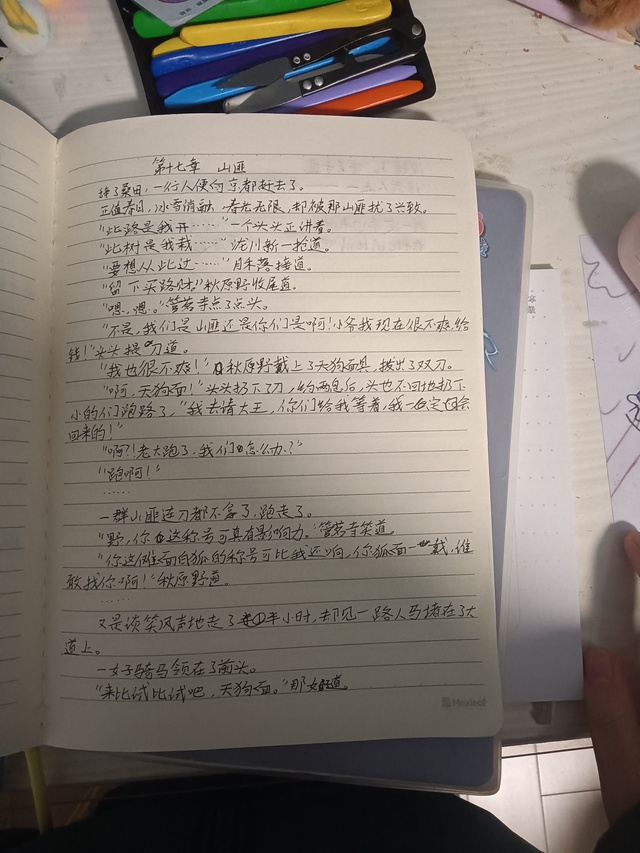 第十七章 山匪
择了桑田，一行人便向京都赶去了。
正值春日，冰雪消融，春光无限，却被那山匪扰了兴致。
"此路是我开……"一个头头正讲着。
"此树是我栽……"泷川新一抢道。
"要想从此过……"月禾落接道。
"留下买路财"秋原野收尾道。
"嗯、嗯。"管茗寺点了点头。
"不是，我们是山匪还是你们是啊！小爷我现在很不爽，给
钱！"头头提刀道。
"我也很不爽！"秋原野戴上了天狗面具，拔出了双刀。
"啊，天狗面！"头头扔下了刀，约两息后，头也不回地扔下
小的们跑路了，"我去请大王，你们给我等着，我一定会
回来的！"
"啊？！老大跑了，我们怎么办？"
"跑啊！"
……
一群山匪连刀都不拿了，跑走了。
"野，你这称号可真有影响力。"管茗寺笑道。
"你这傩面白狐的称号可比我还响，你狐面一戴，谁
敢找你啊！"秋原野道。
……
又是谈笑风声地走了半小时，却见一路人马堵在了大
道上。
一女子骑马领在了前头。
"来比试比试吧，天狗面。"那女道。
Moxleaf